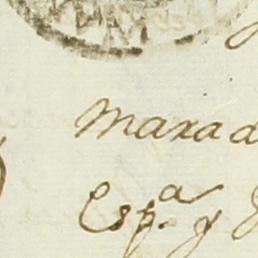 Marad
Espª. y